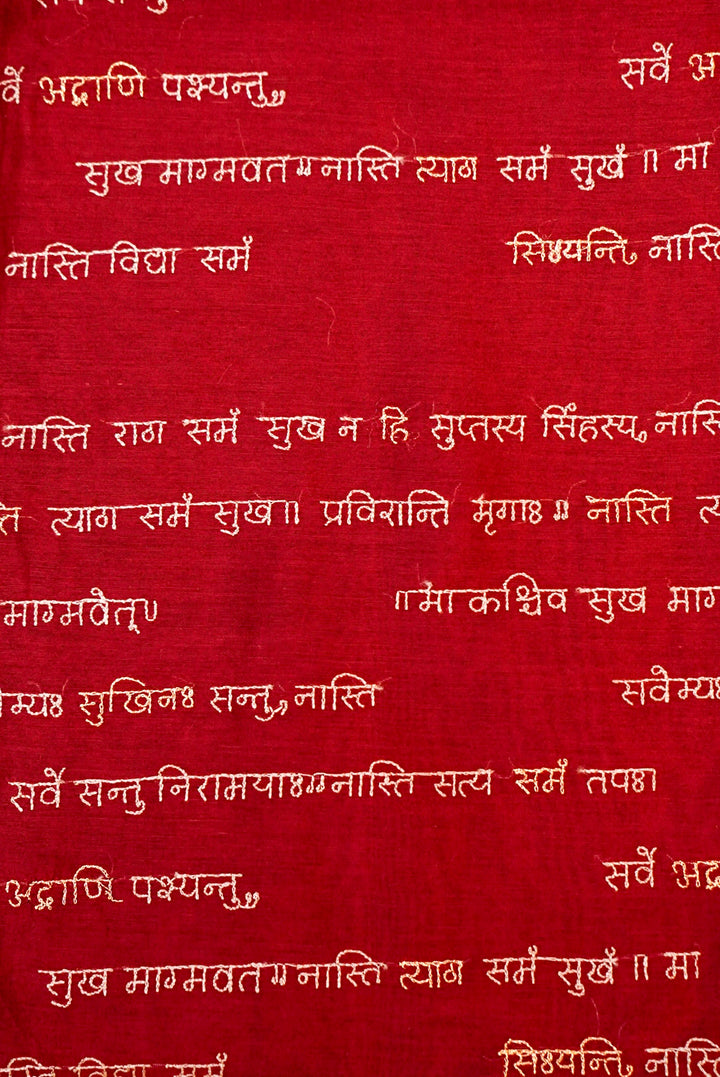 र्वे अद्राणि पश्यन्तु,, सर्वे अ
सुख मागमवत॥नास्ति त्याग समँ सुखँ ॥ मा
नास्ति विद्या समँ सिऽयन्ति, नास्ति
नास्ति राग समँ सुख न हि सुप्तस्य सिंहस्य, नास्ति
ति त्याग समँ सुख॥ प्रविरान्ति मृगाः॥ नास्ति त्य
मागमवेत्॥ ॥मा कश्चिव सुख माग
वेम्यः सुखिनः सन्तु,,नास्ति सवेम्यः
सर्वे सन्तु निरामयाः॥नास्ति सत्य समँ तपः।
अद्राणि पश्यन्तु,, सर्वे अद्रा
सुख मागमवत॥नास्ति त्याग समँ सुखँ ॥ मा
विद्या समँ सिऽयन्ति, नास्ति